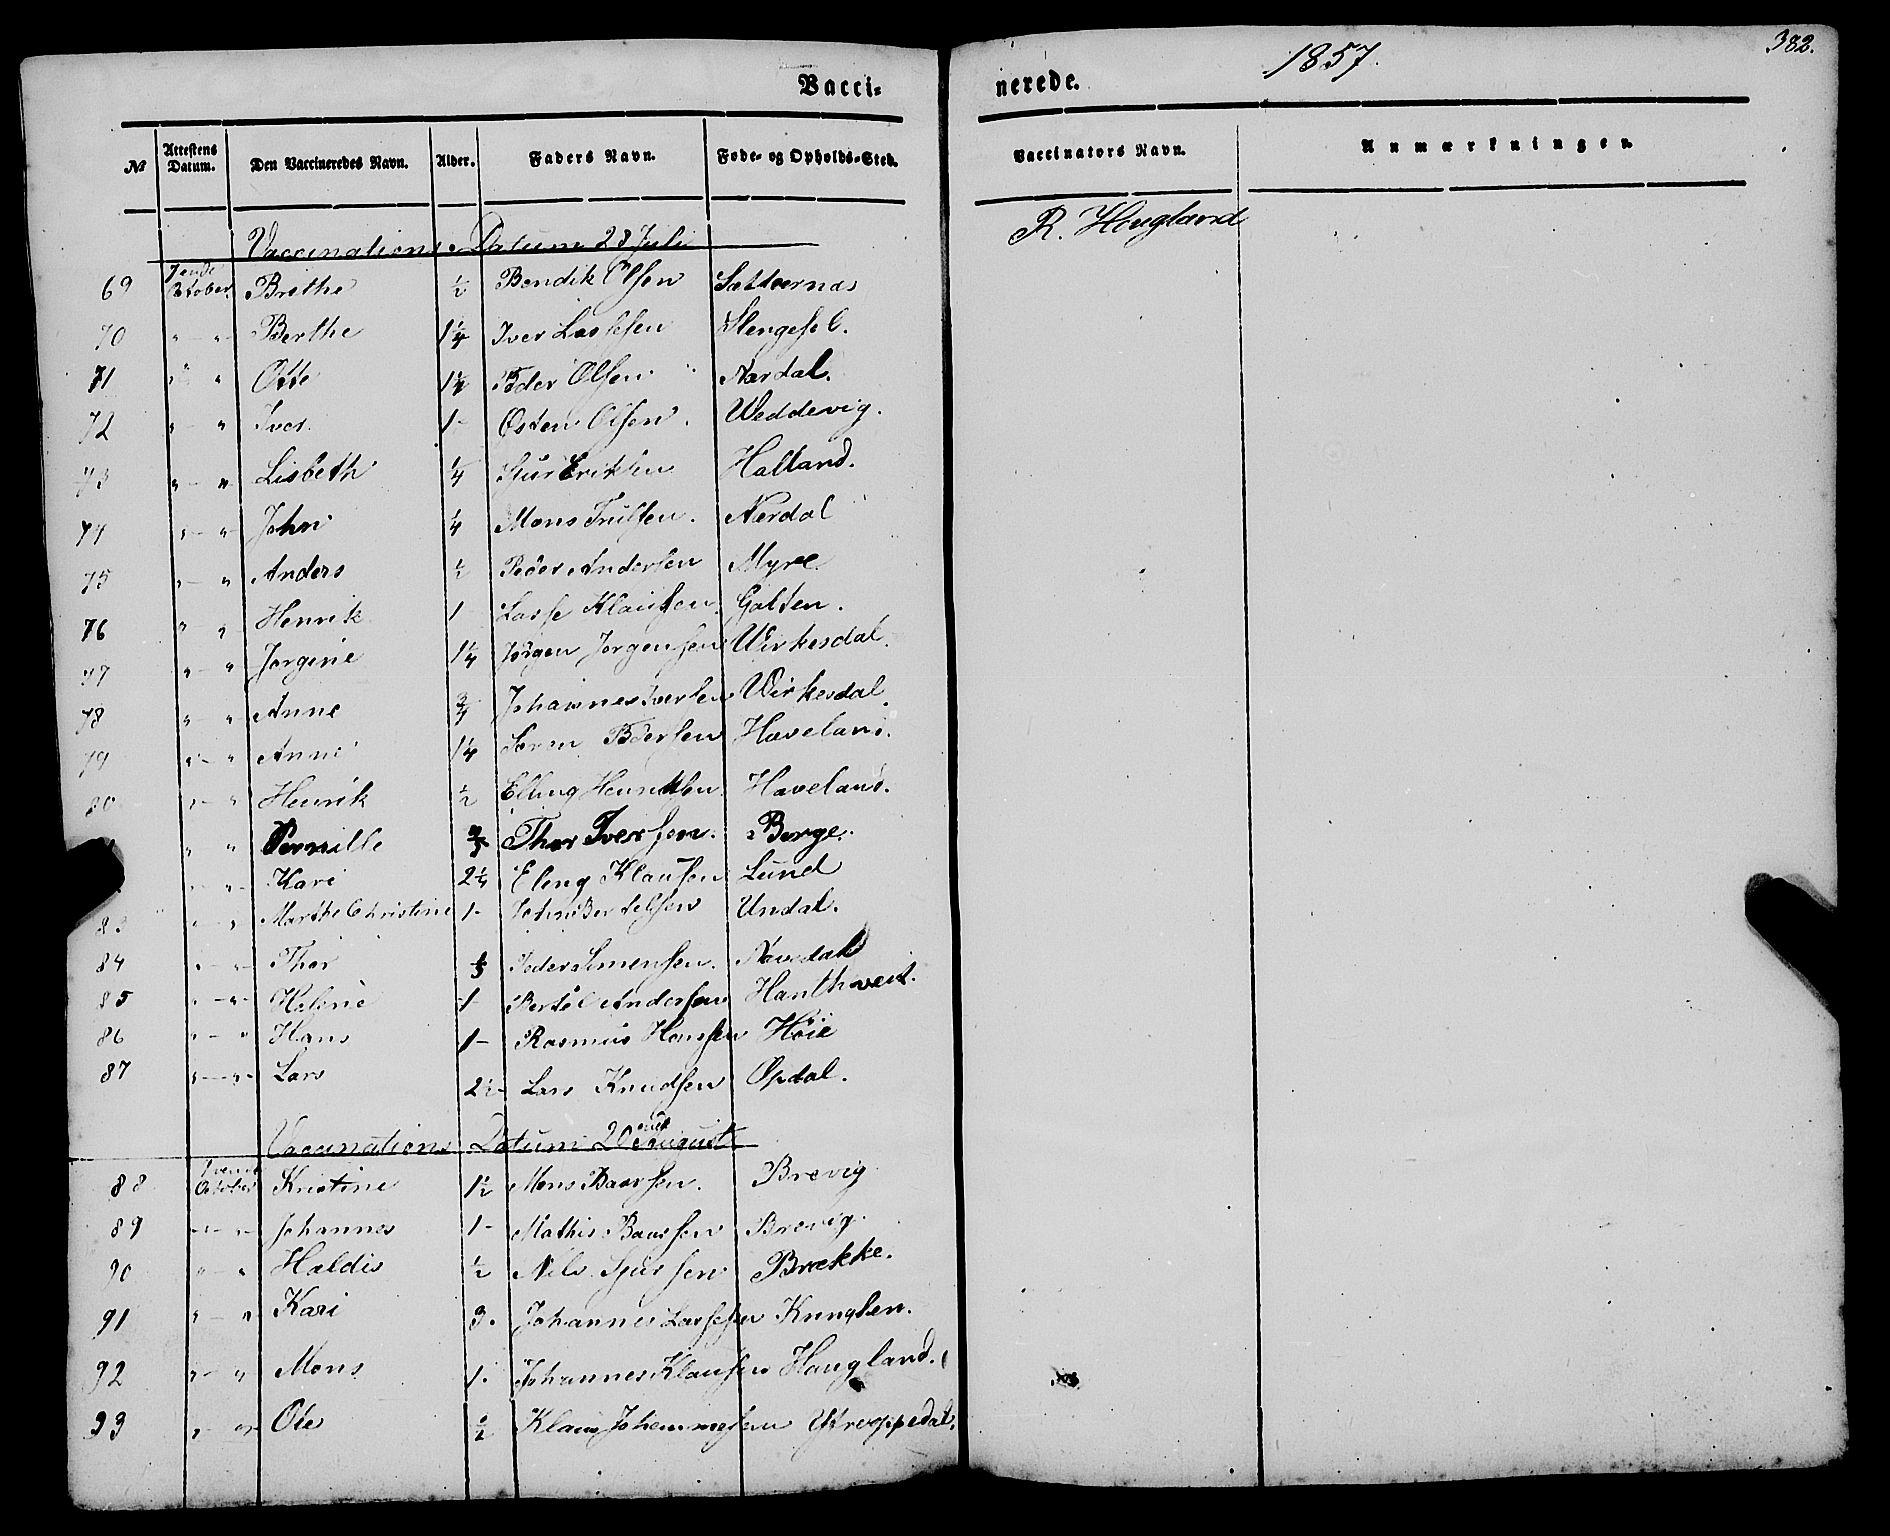 1857. 382.
Vacci- nerede.
No Attestens Datum. Den Vaccineredes Navn. Alder. Faders Navn. Føde- og Opholds-Sted. Vaccinators Navn. Anmærkninger.
Vaccinations Datum 28 Juli R. Hougland
69 7ende October Brithe ½ Bendik Olsen
70 " - " - Berthe 1¼ Iver Lassesen Slengesol.
71 " " Otte 1½ Peder Olsen Nærdal.
72 " - " Iver. 1 - Østen Olsen. Weddevig.
73 " - " Lisbeth ¼ Sjur Eriksen Halland.
74 " - " John ¼ Mons Trulsen. Nærdal
75 " - " Anders ½ Peder Andersen Myre
76 " " Henrik 1 - Lasse Klausen Galten.
77 " - " Jørgine 1¼ Jørgen Jørgensen Wirkesdal.
78 " " Anne ¾ Johannes Iversen Wirkesdal.
79 " - " Anne 1¼ Søren Pedersen Haveland.
80 " - " Henrik ½ Elling Henriksen Haveland.
" " Pernille Thor Iversen. Berge.
" - " - Kari 2¼ Eling Klausen Lund
83 " - " Marthe Christine 1 - John Bertelsen Undal.
84 " - " - Thor Peder Simensen. Nævedal
85 " - " - Helene 1 Bertel Andersen Hanthveit.
86 " - " Hans 1 - Rasmus Hanssen Höie
87 " - " - Lars 2½ - Lars Knudsen Opdal.
Vaccinations Datum 20 August
88 7ende October Kristine 1½ Mons Baarsen. Brevig
89 " - " - Johannes 1 - Mathis Baarsen Brevig.
90 " - " Haldis ½ Nils Sjursen Brekke.
91 " - " Kari 3. Johannes Lassesen
92 " - " Mons 1. Johannes Klausen Haugland.
93 " - " Ole ½ Klaus Johannesen Ytreoppedal.